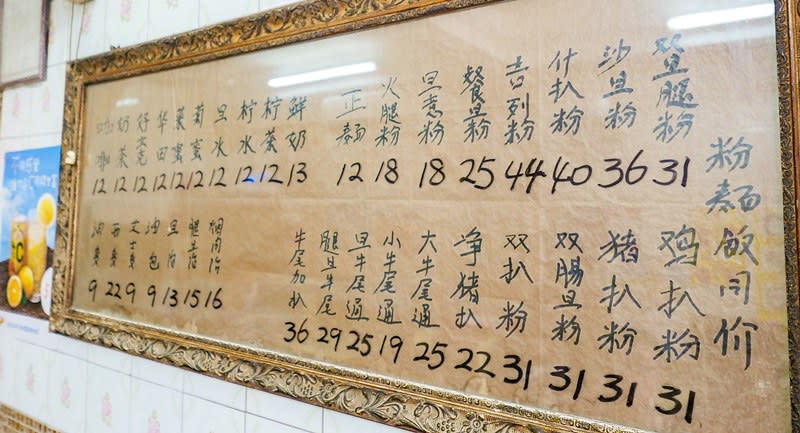 粉麵飯同价
双旦腿粉 31
沙旦粉 36
什扒粉 40
吉列粉 44
餐旦粉 25
旦煮粉 18
火腿粉 18
正麵 12
鲜奶 13
柠茶 12
柠水 12
旦冰 12
菊蜜 12
菜蜜 12
华田 12
好克 12
奶茶 12
咖啡 12
鸡扒粉 31
猪扒粉 31
双肠旦粉 31
双扒粉 31
净猪扒 22
大牛尾通 25
小牛尾通 19
旦牛尾通 25
腿旦牛尾 29
牛尾加扒 36
烟肉治 16
腿旦治 15
旦治 13
油包 9
9
西 22
油 9